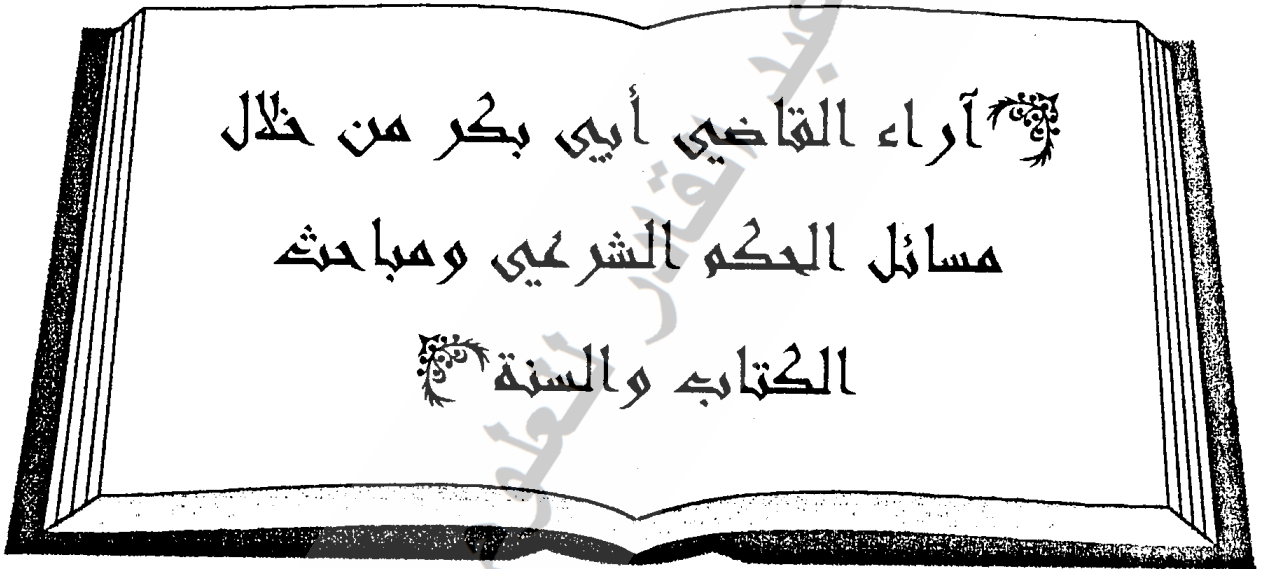 آراء القاضي أبي بكر من خلال
مسائل الحكم الشرعي ومباحث
الكتاب والسنة